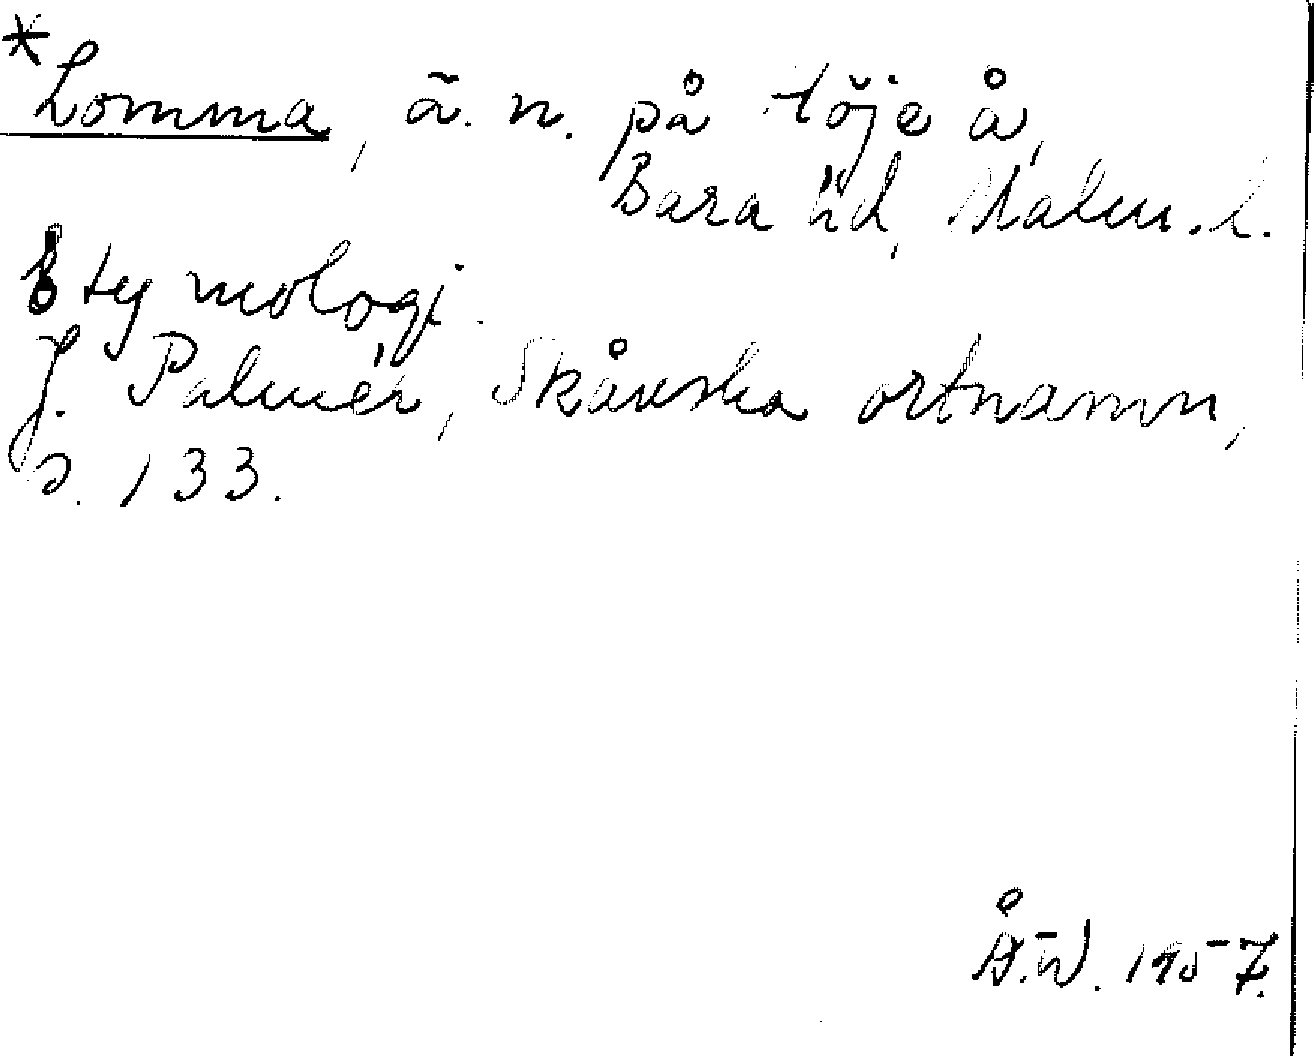 *Lomma, ä. n. på Höje å,
Bara hd, Malm. l.
Etymologi.
J. Palmér, Skånska ortnamn,
s. 133.
Å.W. 1957.